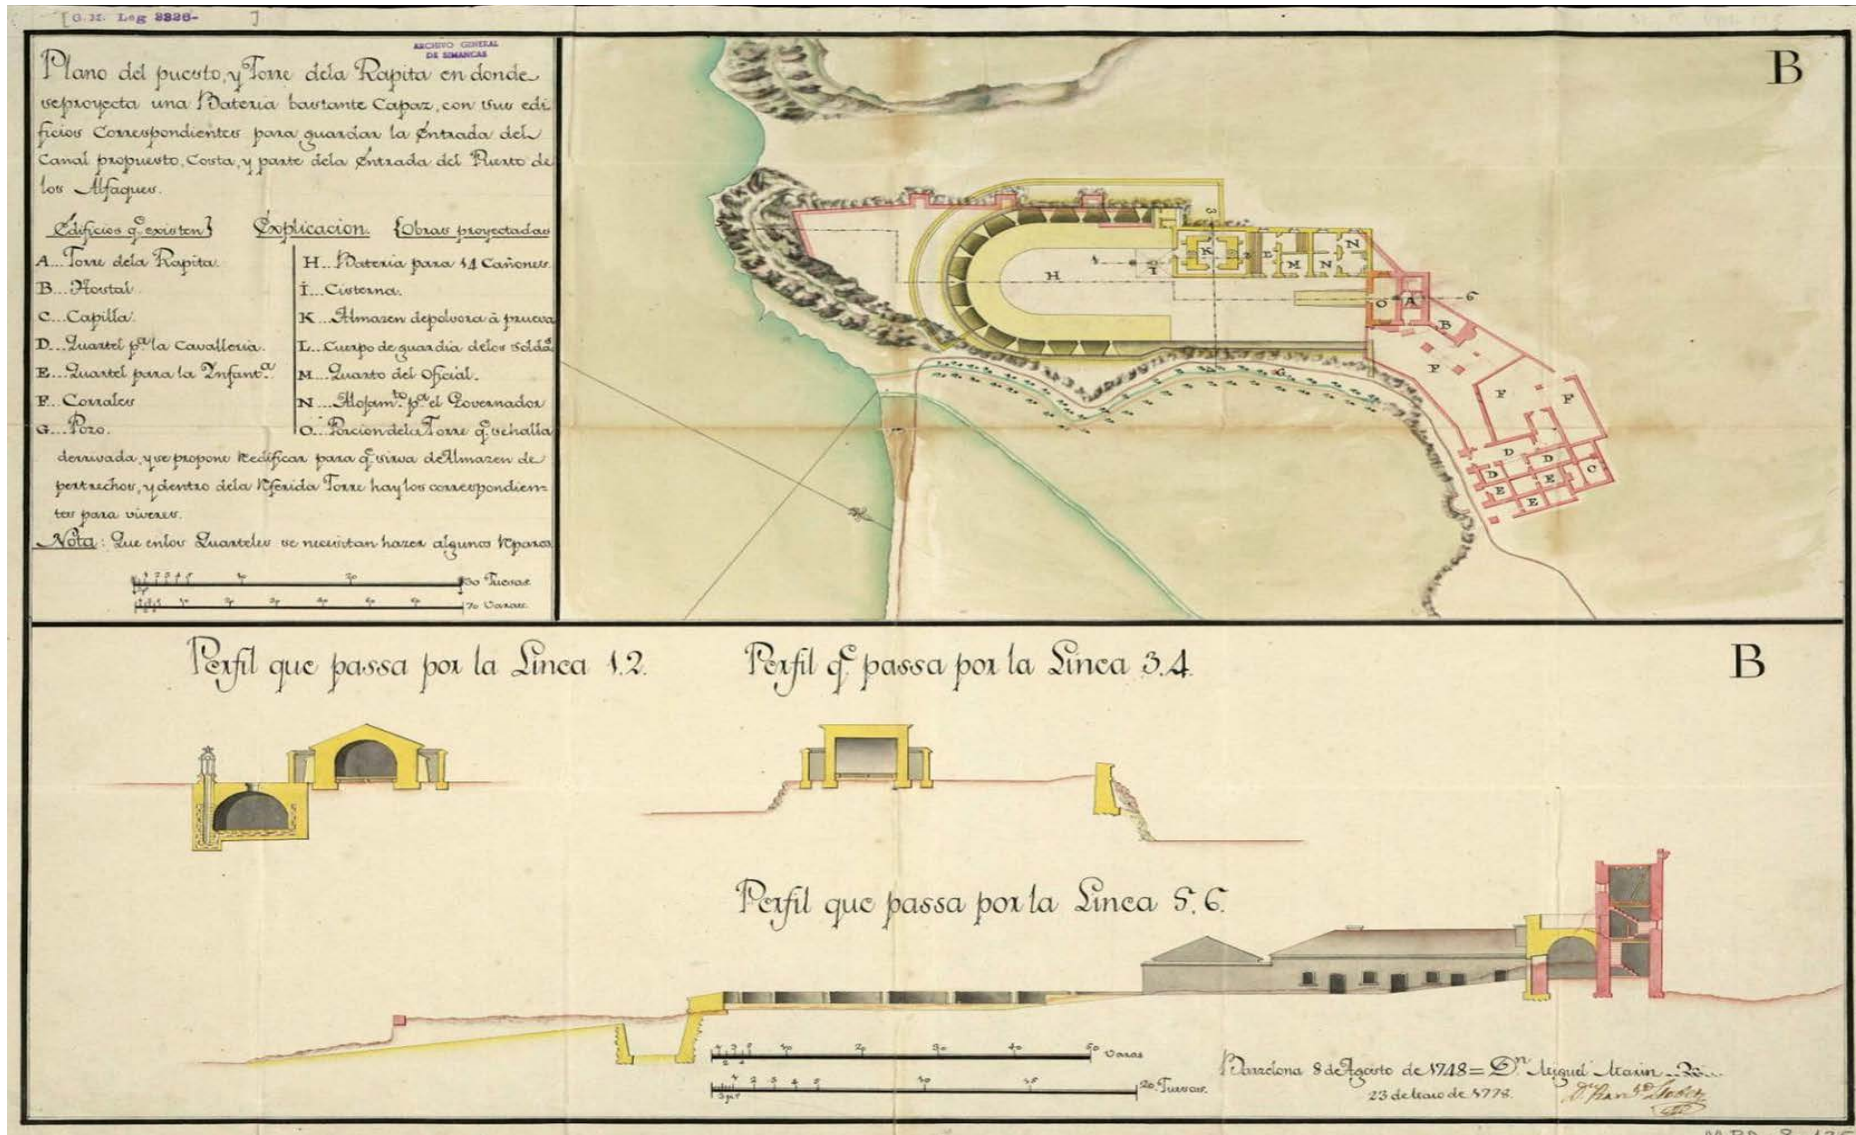 [G.M. Leg 3326- ]
ARCHIVO GENERAL
DE SIMANCAS
Plano del puesto, y Torre dela Rapita en donde
seproyecta una Bateria bastante Capaz, con sus edi
ficios Correspondientes para guardar la Entrada del
Canal propuesto, Costa, y parte dela Entrada del Puerto de
los Alfaques.
Edificios q.e existen} Explicacion. {Obras proyectadas
A...Torre dela Rapita.
B...Hostal.
C...Capilla.
D...Quartel p.a la Cavalleria.
E...Quartel para la Ynfant.a
F...Corrales
G...Pozo.
H...Bateria para 14 Cañones.
I...Cisterna.
K...Almazen depolvora à prueva
L...Cuerpo de guardia delos Solda.s
M...Quarto del Oficial.
N...Alojam.to p.a el Governador
O...Porcion dela Torre q.e sehalla
derrivada, y se propone Redificar para q.e sirva de Almazen de
pertrechos, y dentro dela Rferida Torre hay los correspondien=
tes para viveres.
Nota: Que enlos Quarteles se necesitan hazer algunos Rparos
30 Tuesas.
70 Varas.
B
H
I
K
L
M
N
N
O
A
B
F
F
F
G
D
D
D
E
E
E
C
3
6
B
Perfil que passa por la Linea 1.2.
Perfil q.e passa por la Linea 3.4.
Perfil que passa por la Linea 5.6.
10 20 30 40 50 Varas
1 2 3 4 5 10 15 20 Tuesas.
Barzelona 8 de Agosto de 1748 = D.n Miguel Marin
23 de de 1778.